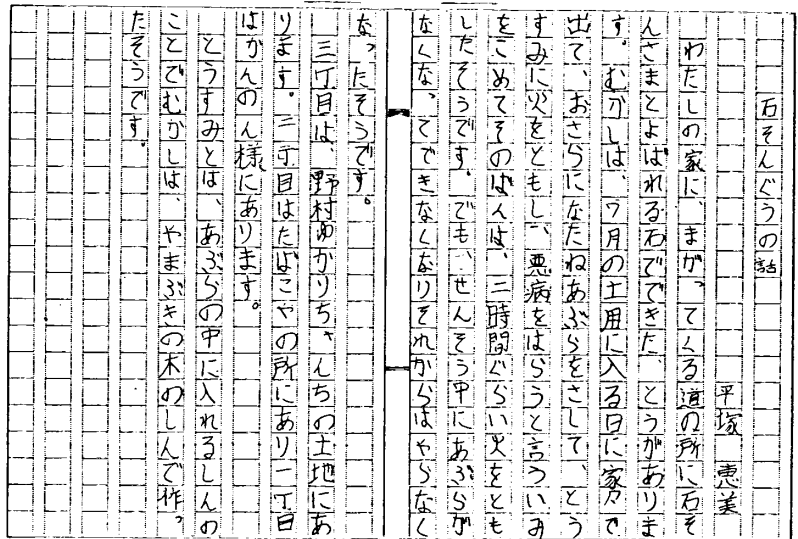 石そんぐうの話
平塚　恵美
わたしの家に、まがってくる道の所に石そ
んさまとよばれる石でできた、とうがありま
す。むかしは、7月の土用に入る日に家々で
出て、おさらになたねあぶらをさして、とう
すみに火をともし、悪病をはらうと言ういみ
をこめてそのばんは、二時間ぐらい火をとも
したそうです。でも、せんそう中にあぶらが
なくなってできなくなりそれからはやらなく
なったそうです。
三丁目は、野村ゆかりちゃんちの土地にあ
ります。二丁目はたばこやの所にあり一丁目
はかんのん様にあります。
とうすみとは、あぶらの中に入れるしんの
ことでむかしは、やまぶきの木のしんで作っ
たそうです。